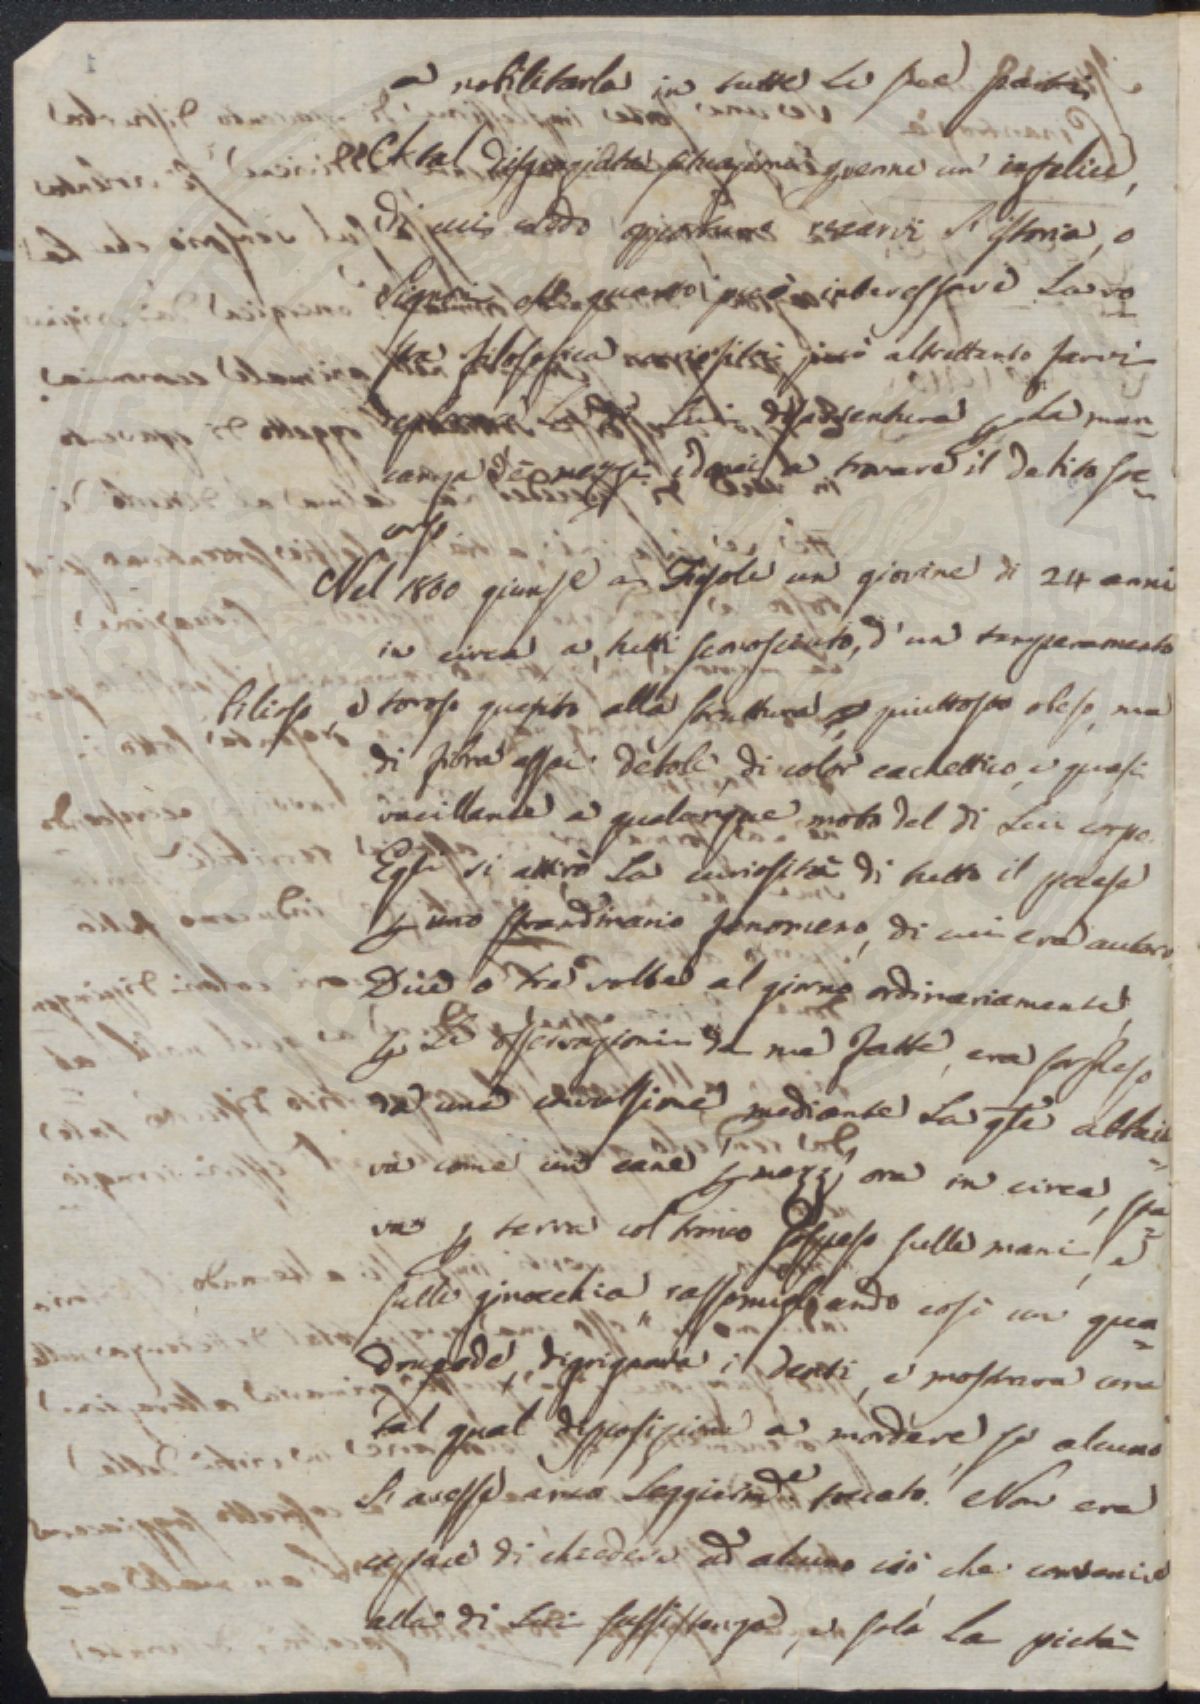 a nobilitarla in tutte le sue parti
A tal disgraziata situazione venne un' infelice,
di cui credo opportuno recarvi l'istoria, o
Signori, che quanto può interessare la vo
stra filosofica curiosità, può altrettanto farvi
deplorare la di Lui disavventura p la man=
canza de' mezzi idonei a trovare il debito soc=
corso
Nel 1800 giunse a Fiesole un giovine di 24 anni
in circa a tutti sconosciuto, d'un temperamento
bilioso, e toroso quanto alla struttura, piuttosto obeso, ma
di fibra assai debole, di color cachettico, e quasi
vacillante a qualunque moto del di Lui corpo.
Egli si attirò la curiosità di tutto il paese
p uno straordinario fenomeno, di cui era autore.
Due o tre volte al giorno ordinariamente,
p Le osservazioni da me fatte, era sorpreso
da una convulsione, mediante la qle abbaia=
va come un cane p mezz' ora in circa,
va p terra col tronco sospeso sulle mani, e
sulle ginocchia, rassomigliando così un qua=
drupede, digrignava i denti, e mostrava una
tal qual disposizione a mordere, se alcuno
L'avesse anco leggierme toccato. Non era
capace di chiedere ad alcuno ciò, che conveniva
alla di Lui sussistenza, e sola la pietà